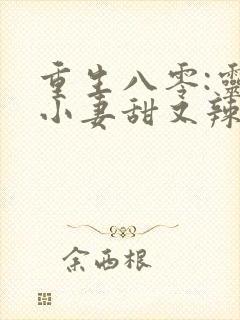 重生八零:靈
小妻甜又辣
余西根